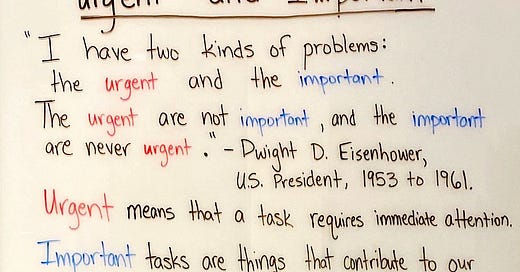 urgent and Important
"I have two kinds of problems:
the urgent and the important.
The urgent are not important, and the important
are never urgent." - Dwight D. Eisenhower,
U.S. President, 1953 to 1961.
Urgent means that a task requires immediate attention.
Important tasks are things that contribute to our